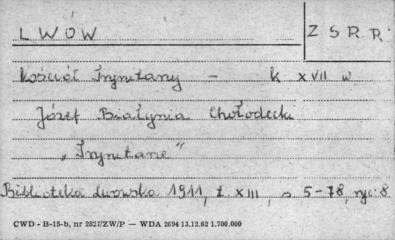 LWÓW
Z S R R
Kościół Trynitarzy - k XVII w
Józef Białynia Chołodecki
"Trynitarze"
Biblioteka lwowska 1911, t. XIII, s 5-78, ryc. 8
CWD - B-15-b, nr 2827/ZW/P — WDA 2694 13.12.62 1.700.000